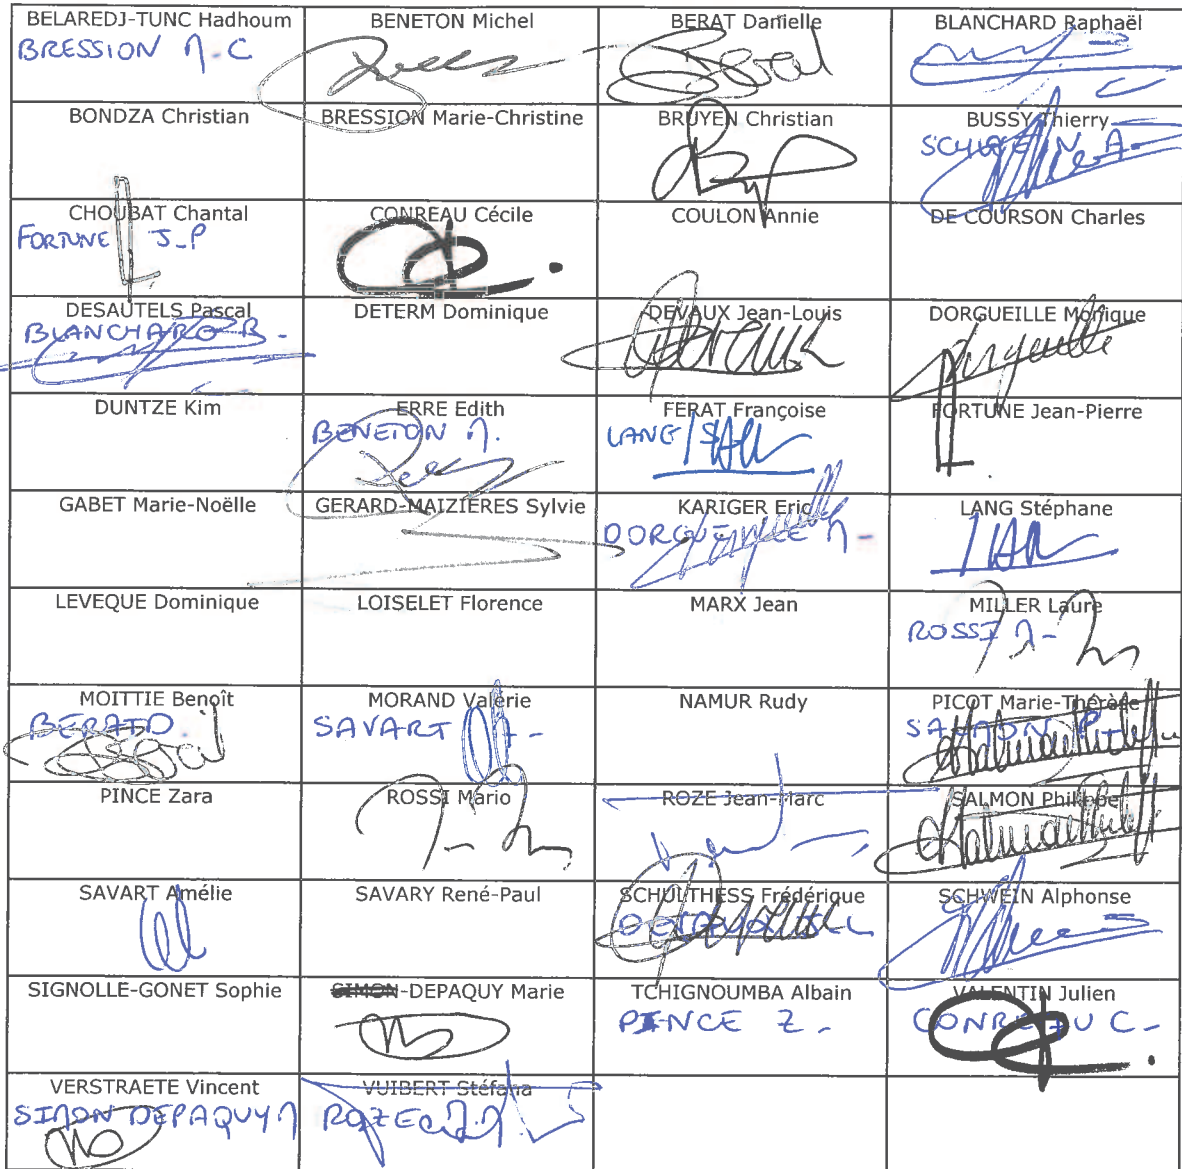 BELAREDJ-TUNC Hadhoum
BRESSION M.C
BENETON Michel
BERAT Danielle
Berat
BLANCHARD Raphaël
BONDZA Christian
BRESSION Marie-Christine
BRUYEN Christian
BUSSY Thierry
SCHWEIN A-
CHOUBAT Chantal
FORTUNE J-P
CONREAU Cécile
COULON Annie
DE COURSON Charles
DESAUTELS Pascal
BLANCHARD R-
DETERM Dominique
DEVAUX Jean-Louis
DORGUEILLE Monique
DUNTZE Kim
ERRE Edith
BENETON M.
FERAT Françoise
LANG S
FORTUNE Jean-Pierre
GABET Marie-Noëlle
GERARD-MAIZIERES Sylvie
KARIGER Eric
DORGUEILLE M-
LANG Stéphane
LEVEQUE Dominique
LOISELET Florence
MARX Jean
MILLER Laure
ROSSI M-
MOITTIE Benoît
BERAT D
MORAND Valérie
SAVART A-
NAMUR Rudy
PICOT Marie-Thérèse
SALMON P-
PINCE Zara
ROSSI Mario
ROZE Jean-Marc
SALMON Philippe
SAVART Amélie
SAVARY René-Paul
SCHULTHESS Frédérique
SCHWEIN Alphonse
SIGNOLLE-GONET Sophie
SIMON-DEPAQUY Marie
TCHIGNOUMBA Albain
PINCE Z-
VALENTIN Julien
CONREAU C-
VERSTRAETE Vincent
SIMON DEPAQUY M
VUIBERT Stéfana
ROZE J.M